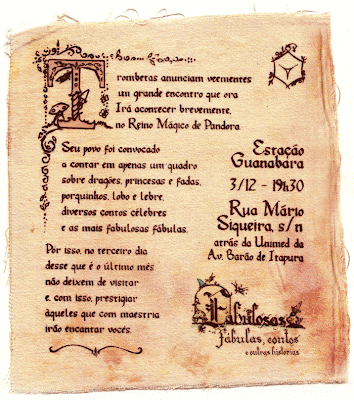 Trombetas anunciam veementes
um grande encontro que ora
Irá acontecer brevemente,
no Reino Mágico de Pandora
Seu povo foi convocado
a contar em apenas um quadro
sobre dragões, princesas e fadas,
porquinhos, lobo e lebre,
diversos contos célebres
e as mais fabulosas fábulas.
Por isso, no terceiro dia
desse que é o último mês
não deixem de visitar
e, com isso, prestigiar
àqueles que com maestria
irão encantar vocês.
Estação
Guanabara
3/12 - 19h30
Rua Mário
Siqueira, s/n
atrás da Unimed da
Av. Barão de Itapura
Fabulosas
fábulas, contos
e outras histórias